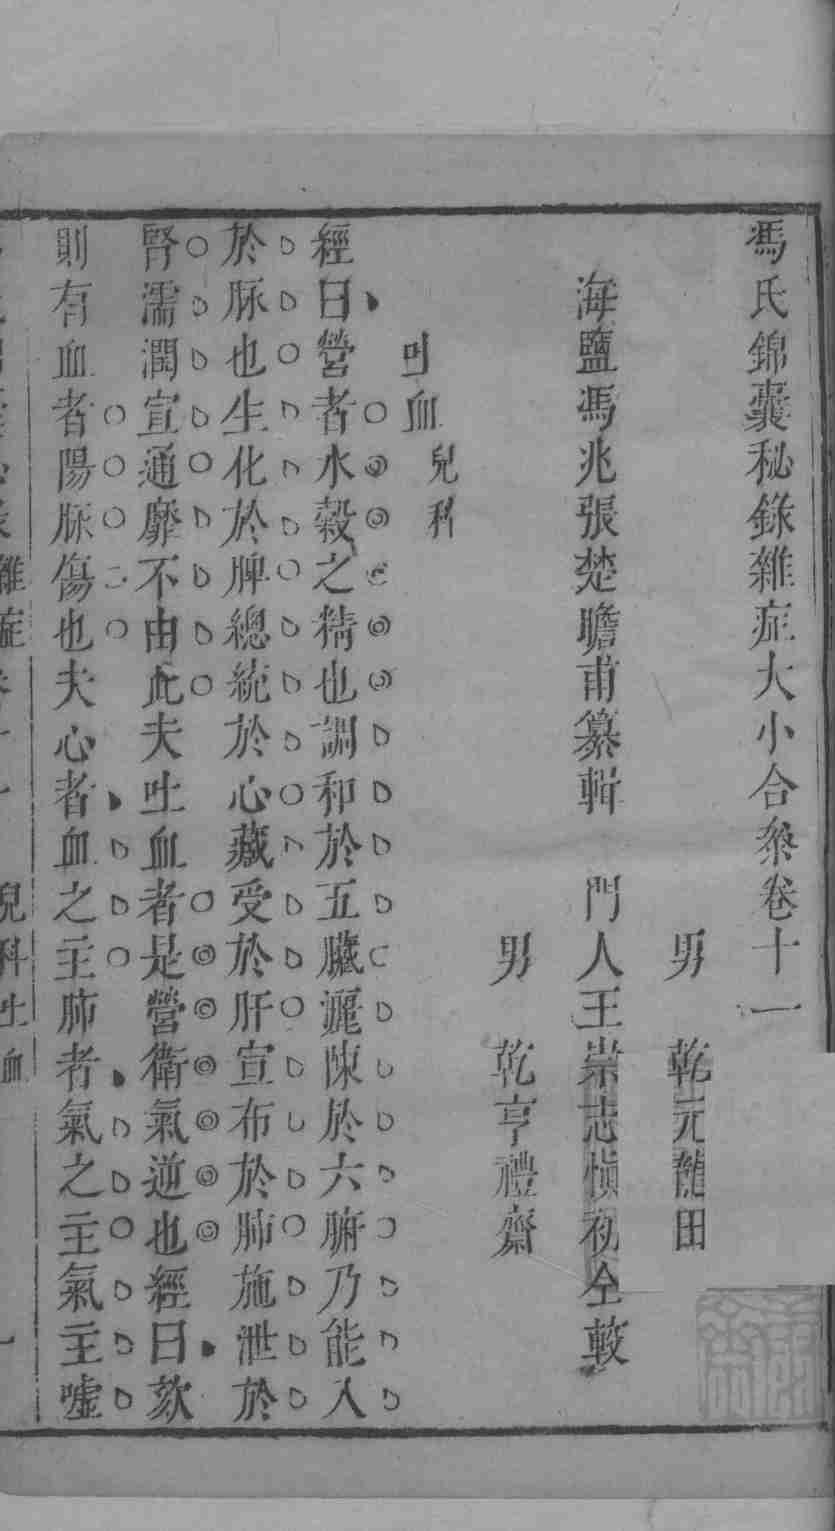 馮氏錦囊秘錄雜症大小合叅卷十一
男　乾元龍田
海鹽馮兆張楚瞻甫纂輯　門人王崇志慎初仝較
男　乾亨禮齋
吐血兒科
經曰營者水穀之精也調和於五臟灑陳於六腑乃能入
於脉也生化於脾總統於心藏受於肝宣布於肺施泄於
腎濡潤宣通靡不由此夫吐血者是營衛氣逆也經曰欬
則有血者陽脉傷也夫心者血之主肺者氣之主氣主噓
雜症卷十一　兒科吐血　一